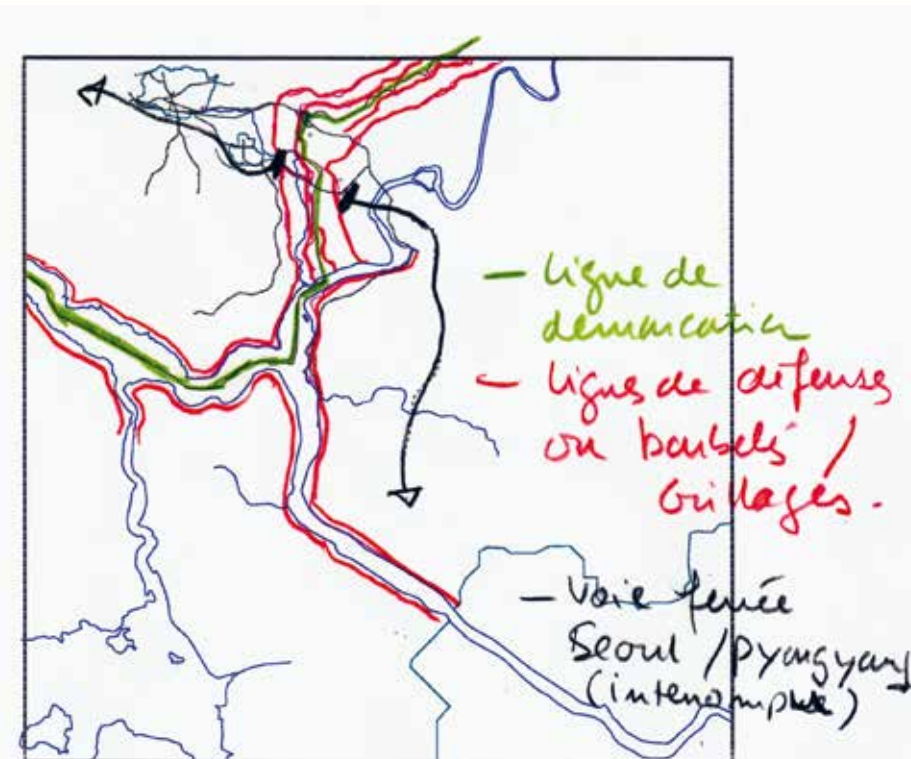 — Ligne de
démarcation
— Lignes de défenses
ou barbelés /
Grillages.
— Voie ferrée
Seoul / Pyongyang
(interrompue)